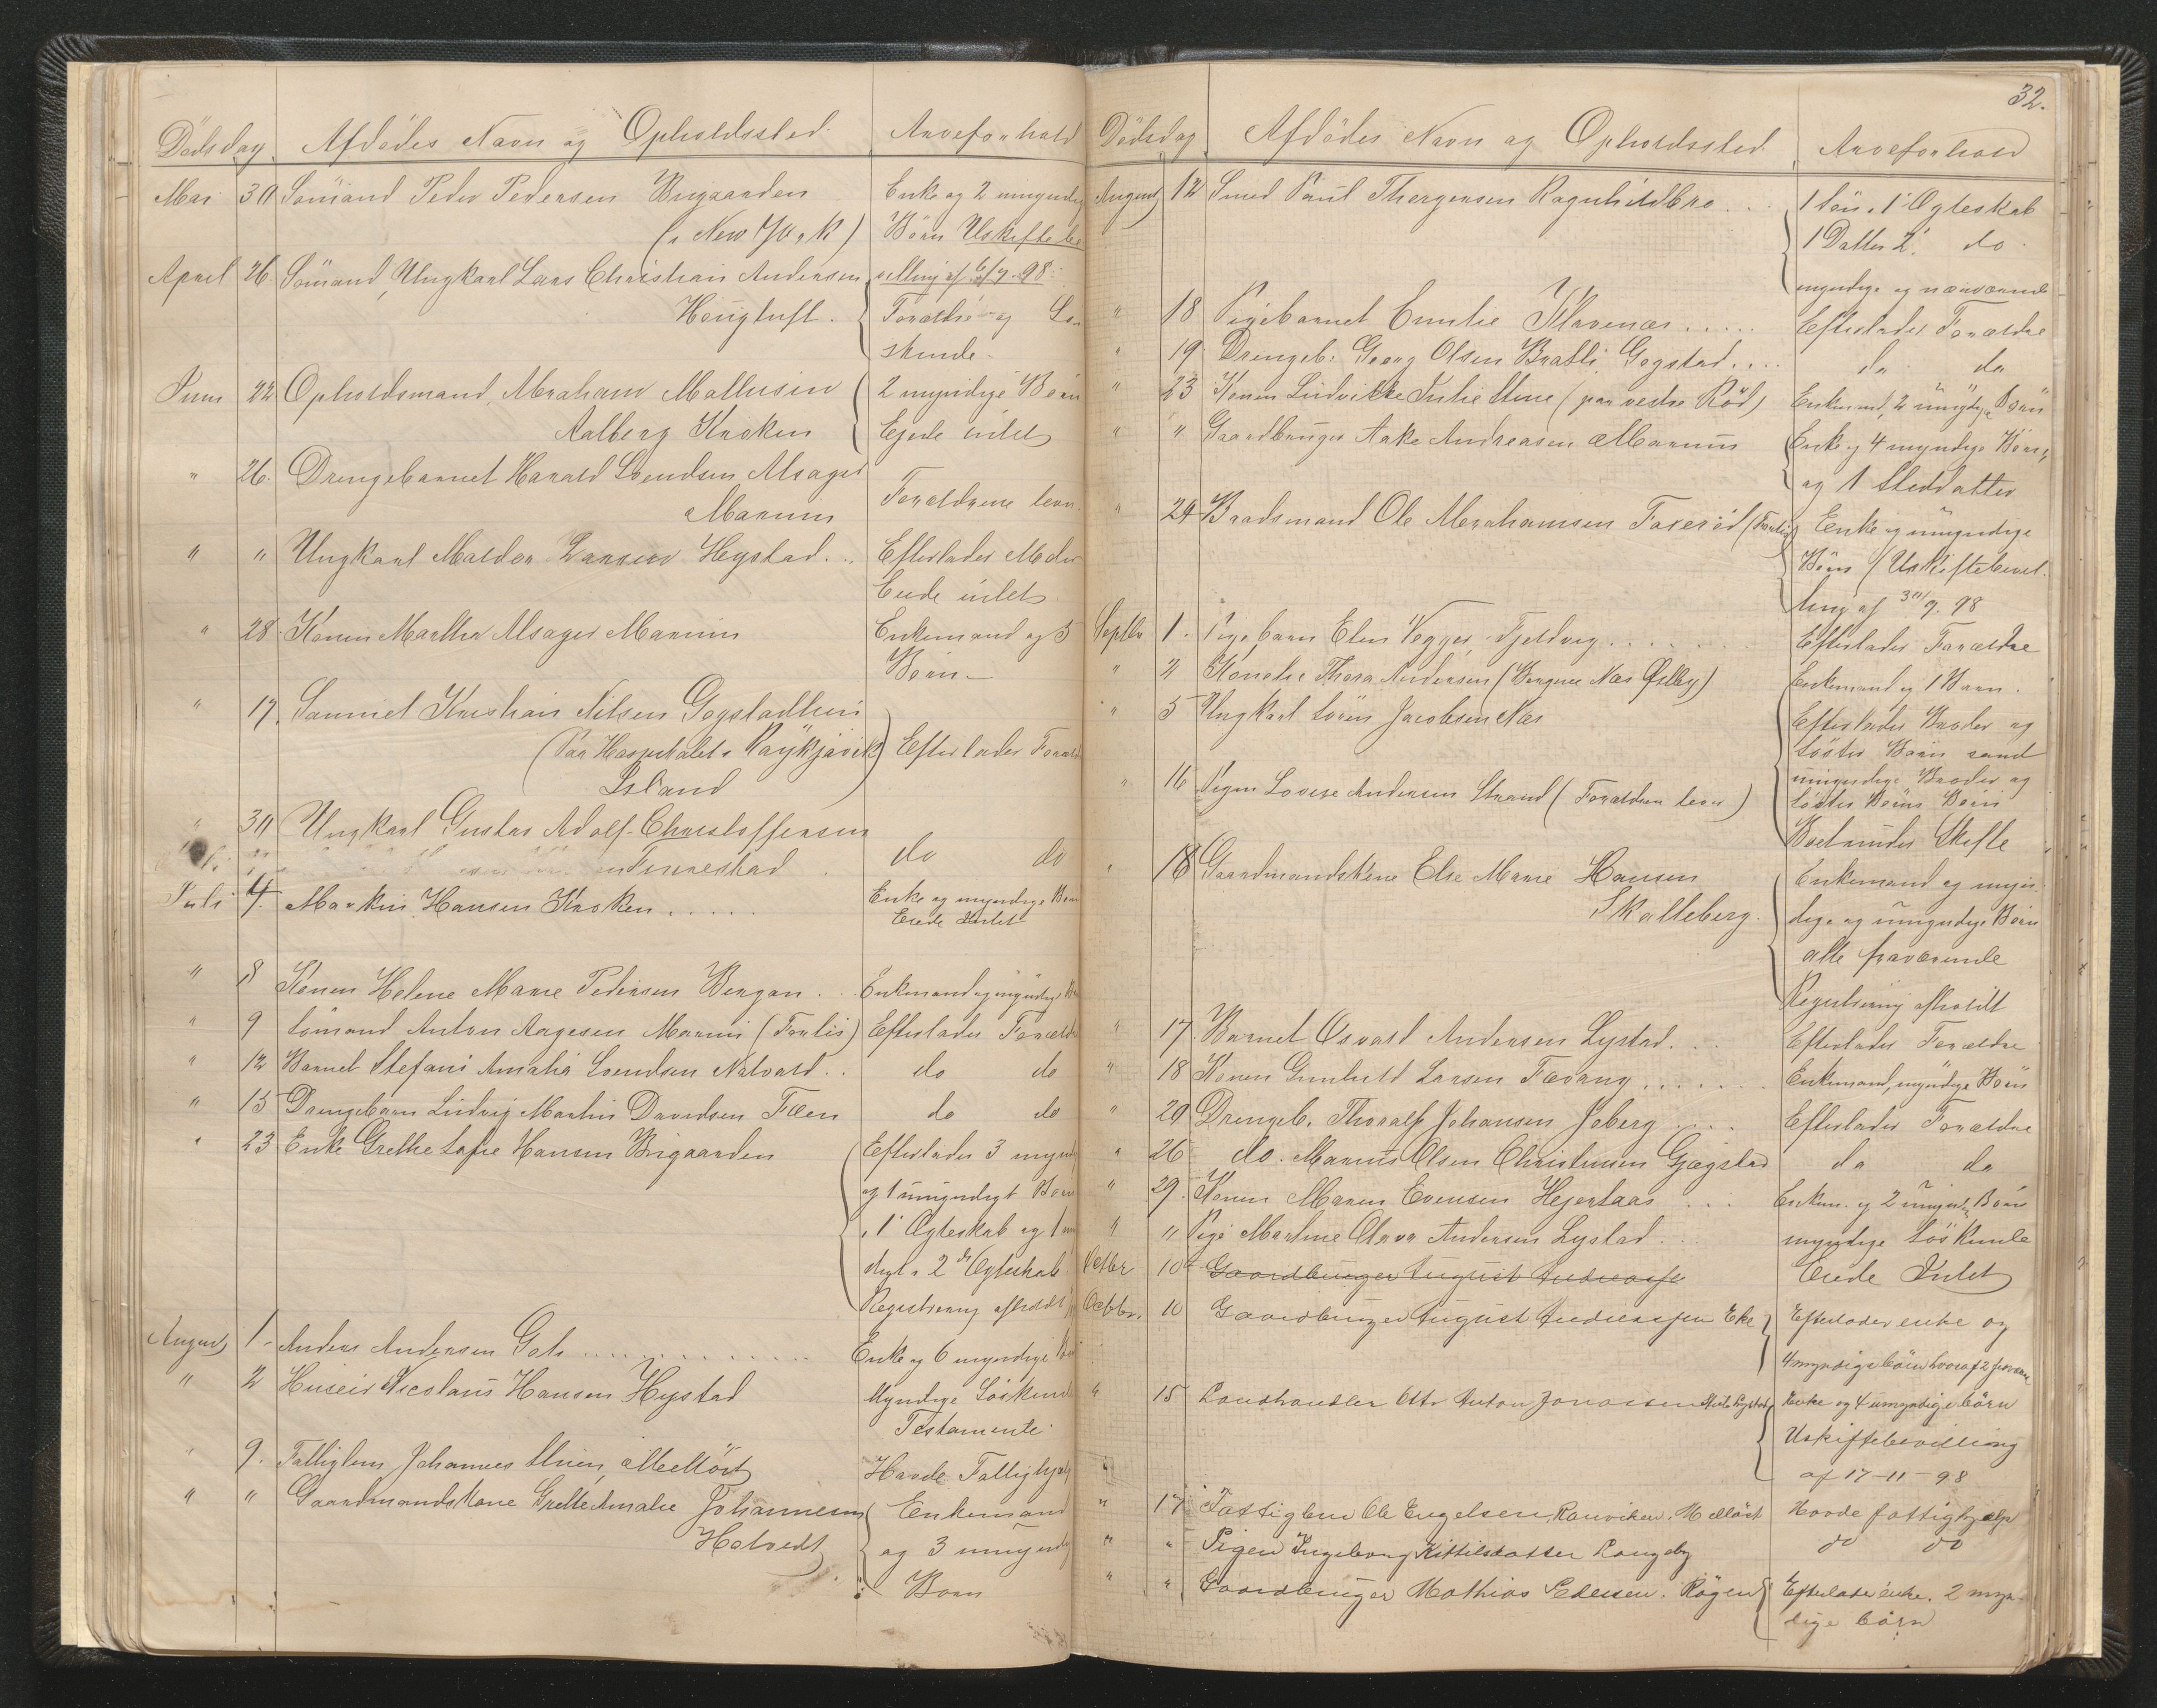 Dödsdag Afdödes Navn og Opholdssted. Arveforhold
Mai 30 Sömand Peder Pedersen Brygaarden Enke og 2 umyndig
(i New York) Börn Uskiftebe
April 26. Sömand, Ungkarl Lars Christian Andersen villing af 6/7-98.
Hougtuft. Forældre og Sö-
skende.
Juni 22 Opholdsmand Abraham Mathisen 2 myndige Börn
Aalberg Kroken Eiede intet
" 26. Drengebarnet Harald Svendsen Alsager Forældrene lever
Marum
" " Ungkarl Maldor Larsen Hystad. .. Efterlader Moder
Eiede intet
" 28 Konen Marthea Alsager Marum Enkemand og 5
Börn -
" 17. Samuel Kristian Nilsen Gogstad
(Paa Hospitalet i Raykjavik Efterlader Foræld
Island
" 30 Ungkarl Gustav Adolf Christoffersen
Finnestad do do
Juli 4 Markus Hansen Kroken ..... Enke og myndige Börn
Eiede Intet
" 8 Konen Helene Marie Pedersen Bergan .. Enkemand og myndige B
" 9 Sömand Anton Aagesen Marum (Forlis) Efterlader Foræld
" 12 Barnet Stefani Amalia Svendsen Natvald .. do do
" 15 Drengebarn Ludvig Martin Davidsen Fæen do do
" 23 Enke Grethe Sofie Hansen Brigaarden Efterlader 3 mynd
og 1 umyndigt Barn
i 1' Ægteskab og 1 um
digt i 2det Ægteskab
Registrering afholdt
August 1 - Anders Andersen Gate ............. Enke og 6 myndige B
" 2 Huseier Nicolaus Hansen Hystad Myndige Söskend
Testamente.
" 9. Fattiglem Johannes Mellöst Havde Fattighjælp
" " Gaardmandskone Grethe Amalie Johannesen Enkemand
Hotvedt og 3 umynd
Börn
32.
Dödsdag Afdödes Navn og Opholdssted. Arveforhold
August 12 Smed Paul Thorgersen Ragnhildbro ... 1 Sön i 1' Ægteskab
1 Datter 2' do
myndige og nærværende
" 18 Pigebarnet Emilie Klavenæs ..... Efterlader Forældre
" 19 Drengeb. Georg Olsen Bratli, Gogstad .... do do
" 23 Konen Ludvikke Julie (paa vestre Röd) Enkemand, 2 umyndige Börn
" " Gaardbruger Aake Andreasen Marum Enke og 4 myndige Börn,
og 1 Steddatter
" 24 Baadsmand Ole Abrahamsen Faxeröd (Forlis) Enke og umyndige
Börn (Uskiftebevil-
ling af 30/9. 98
Septbr 1. Pigebarn Elen Vegger, Fjeldvig ....... Efterlader Forældre
" 2 Konen Thora Andersen (Bergene Næs Østby) Enkemand og 1 Barn.
" 5 Ungkarl Sören Jacobsen Næs Efterlader Broder og
Söster Börn samt
umyndige Broder og
" 16 Pigen Lovise Andersen Strand (Forældrene lever) Söster Börns Börn
Boet under Skifte
" 18 Gaardmandskone Else Marie Hansen Enkemand og myn-
Skalleberg. dige og umyndige Börn
alle fraværende
Registrering afholdt
" 17 Barnet Osvald Andersen Lystad. .. Efterlader Forældre
" 18 Konen Gunhild Larsen Fævang ...... Enkemand, myndige Börn
" 20 Drengeb. Thoralf Johansen Joberg .... Efterlader Forældre
" 26 do. Marius Olsen Christensen Gjøgstad do do
" 29. Konen Maren Evensen Hejertaas ... Enkem. og 2 umynd. Börn
" " Pige Martine Olava Andersen Lystad ... myndige Söskende
Octbr 10 Gaardbruger August Andreasse Eiede Intet
Octbr. 10 Gaardbruger August Andreassen Eke Efterlader enke og
4 myndige börn hvoraf 2 fravær
" 15 Landhandler Otto Anton Jonassen Enke og 4 umyndige börn
Uskiftebevilling
af 17-11-98
" 17 Fattiglem Ole Engelsen Ranviken. Mellöst Havde fattighjælp
" " Pigen Ingeborg Kittilsdatter Langeby do do
" " Gaardbruger Mathias Pedersen. Rögen Efterlader enke. 2 myn-
dige börn